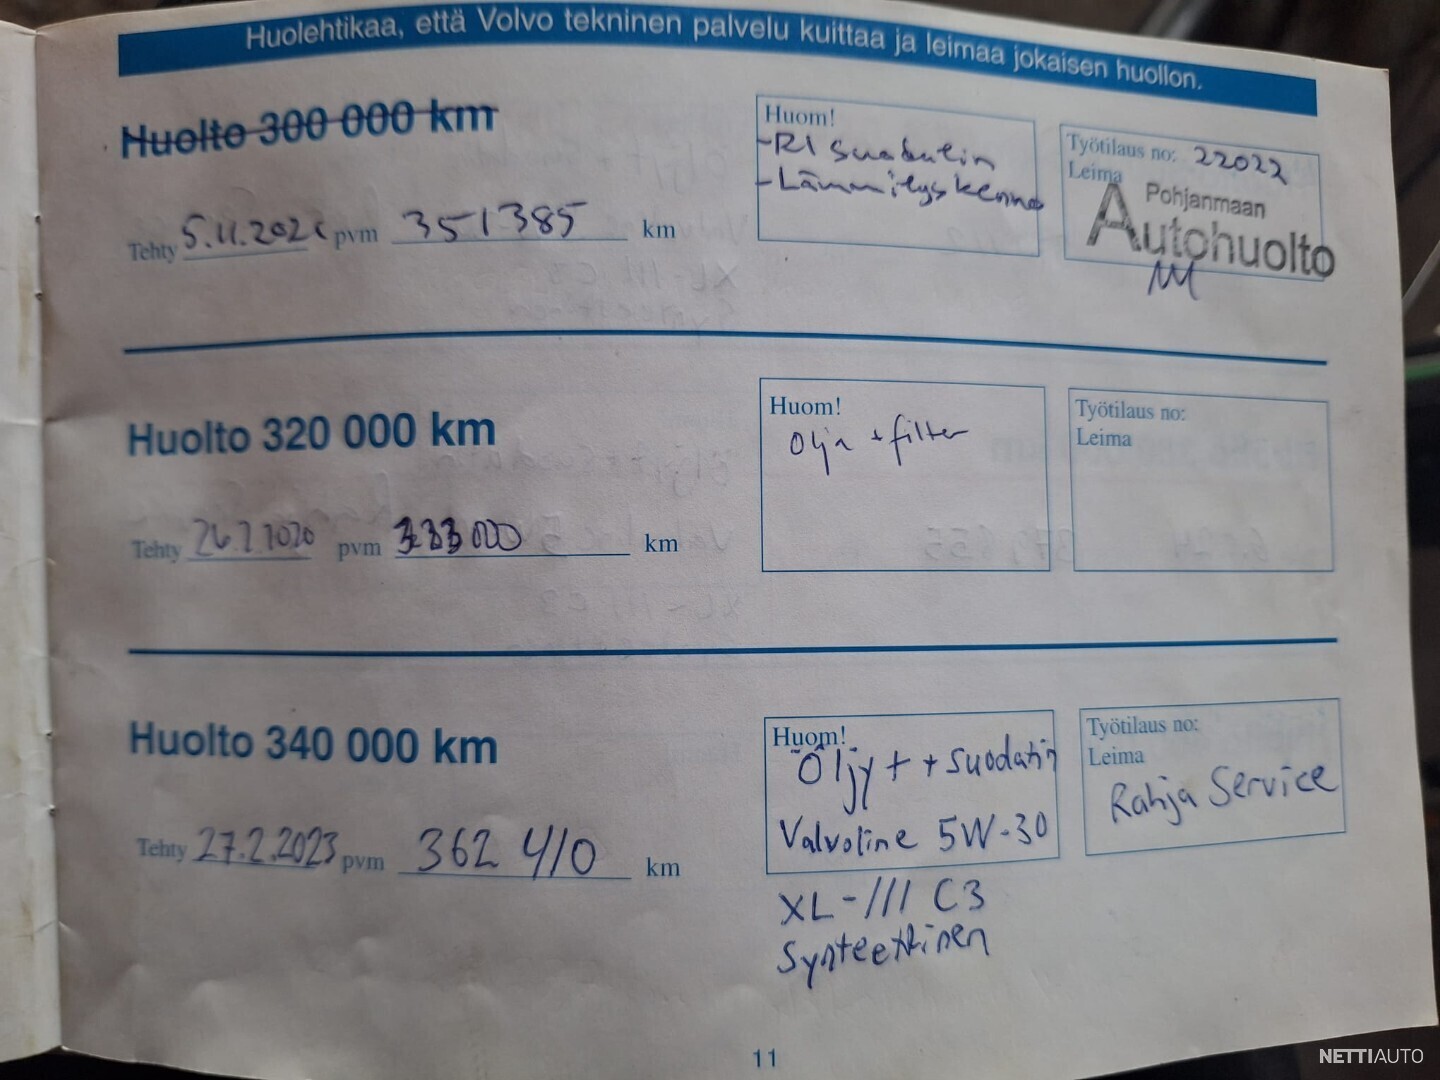 Huolehtikaa, että Volvo tekninen palvelu kuittaa ja leimaa jokaisen huollon.
Huolto 300 000 km
Tehty 5.11.202 pvm 351385 km
Huom!
-RI suodatin
-Lämmityskenno
Työtilaus no: 22022
Leima
Pohjanmaan
Autohuolto
Huolto 320 000 km
Tehty 26.2.2020 pvm 333 000 km
Huom!
Olja + filter
Työtilaus no:
Leima
Huolto 340 000 km
Tehty 27.2.2023 pvm 362 410 km
Huom!
Öljyt + suodatin
Valvoline 5W-30
XL-III C3
Synteettinen
Työtilaus no:
Leima
Rahja Service
11
NETTIAUTO